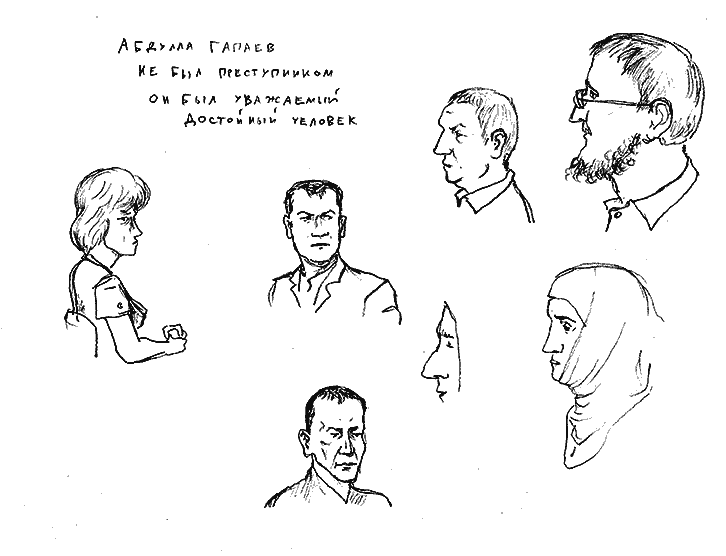 АБДУЛЛА ГАПАЕВ
НЕ БЫЛ ПРЕСТУПНИКОМ
ОН БЫЛ УВАЖАЕМЫЙ
ДОСТОЙНЫЙ ЧЕЛОВЕК